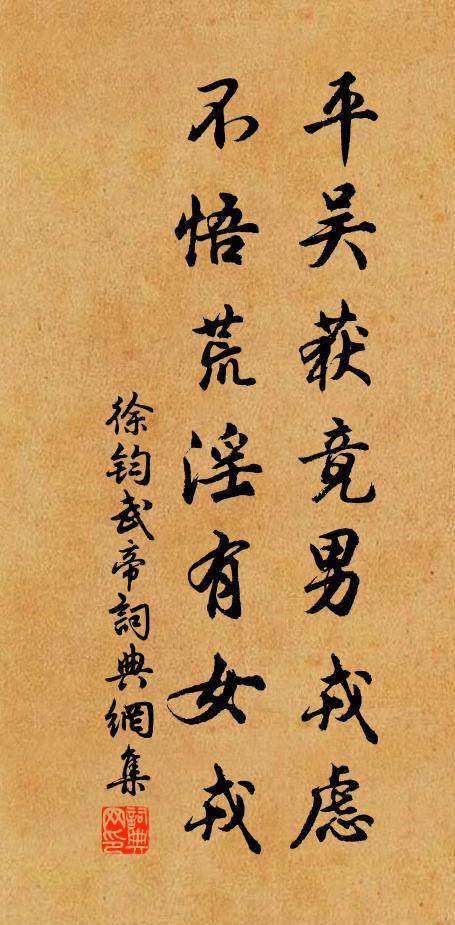 平吴获竟男戎虑
不悟荒淫有女戎
徐钧武帝詞典網集
詞典網印